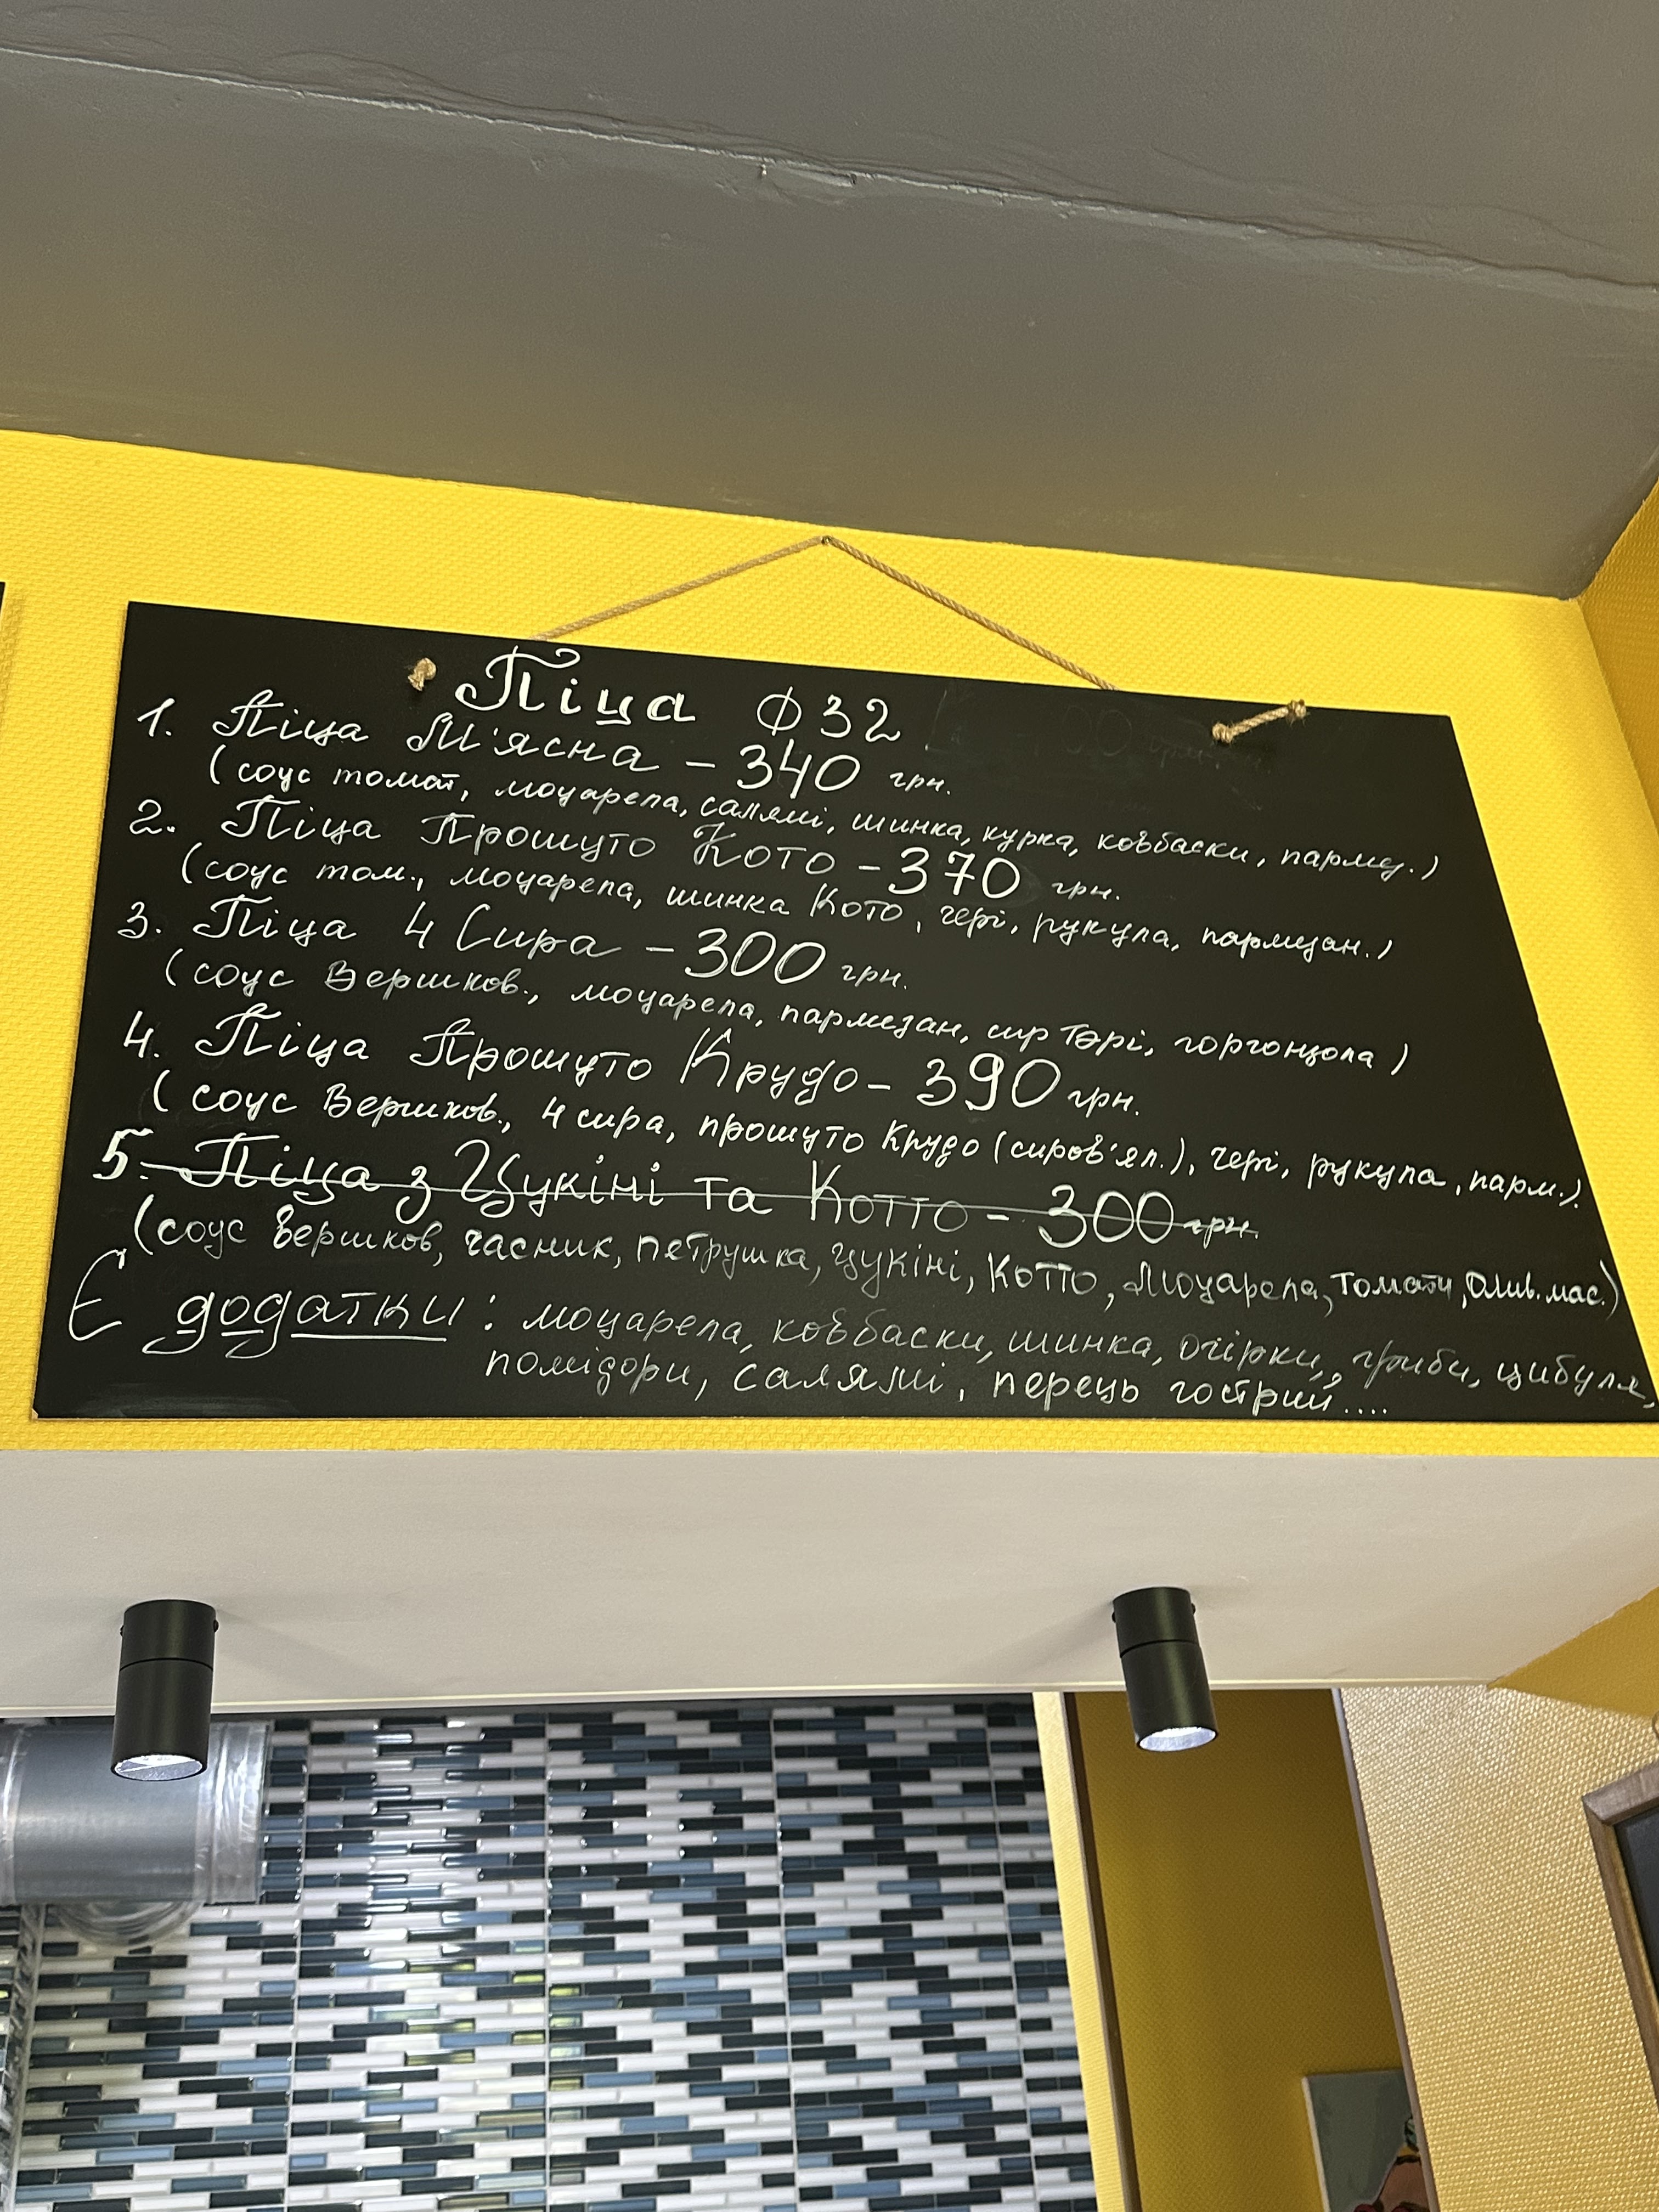 Піца Ф32
1. Піца М'ясна – 340 грн.
(соус томат, моцарела, салямі, шинка, курка, ковбаски, пармез.)
2. Піца Прошуто Кото – 370 грн.
(соус том., моцарела, шинка Кото, чері, рукула, пармезан.)
3. Піца 4 Сира – 300 грн.
(соус Вершков., моцарела, пармезан, сир Тарі, горгонцола)
4. Піца Прошуто Крудо – 390 грн.
(соус Вершков., 4 сира, прошуто Крудо (сиров'ял.), чері, рукула, парм.)
5. Піца з Цукіні та Котто – 300 грн.
(соус вершков, часник, петрушка, цукіні, Котто, Моцарела, томати, олив. мас.)
Є додатки: моцарела, ковбаски, шинка, огірки, гриби, цибуля,
помідори, салямі, перець гострий....